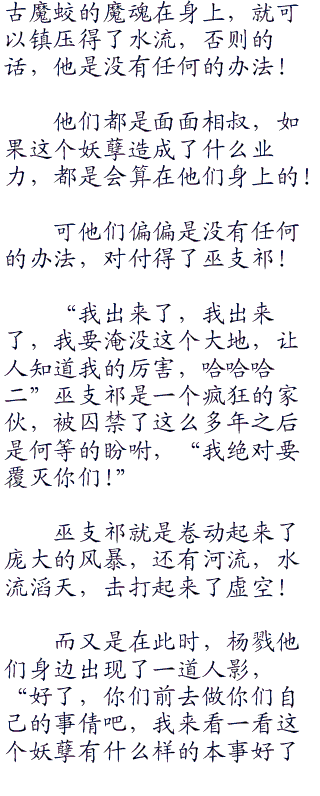 古魔蛟的魔魂在身上，就可
以镇压得了水流，否则的
话，他是没有任何的办法！
他们都是面面相叔，如
果这个妖孽造成了什么业
力，都是会算在他们身上的！
可他们偏偏是没有任何
的办法，对付得了巫支祁！
“我出来了，我出来
了，我要淹没这个大地，让
人知道我的厉害，哈哈哈
二”巫支祁是一个疯狂的家
伙，被囚禁了这么多年之后
是何等的盼咐，“我绝对要
覆灭你们！”
巫支祁就是卷动起来了
庞大的风暴，还有河流，水
流滔天，击打起来了虚空！
而又是在此时，杨戮他
们身边出现了一道人影，
“好了，你们前去做你们自
己的事倩吧，我来看一看这
个妖孽有什么样的本事好了